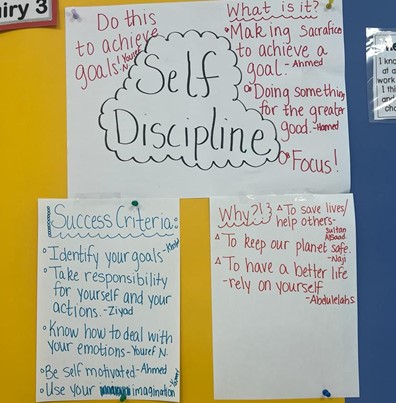 iry 3
Do this
to achieve
goals! Yousef
N.
Self
Discipline
What is it?
Making Sacrafice
to achieve a
goal. - Ahmed
Doing something
for the greater
good. - Hamed
Focus!
I kno
at a
work
I thi
and
cha
Success Criteria:
Identify your goals -
Take responsibility
for yourself and your
actions. - Ziyad
Know how to deal with
your emotions - Yousef N.
Be self motivated - Ahmed
Use your imagination
Why?!?
To save lives/
help others -
Sultan
To keep our planet safe.
- Naji
To have a better life
- rely on yourself
- Abdulelah